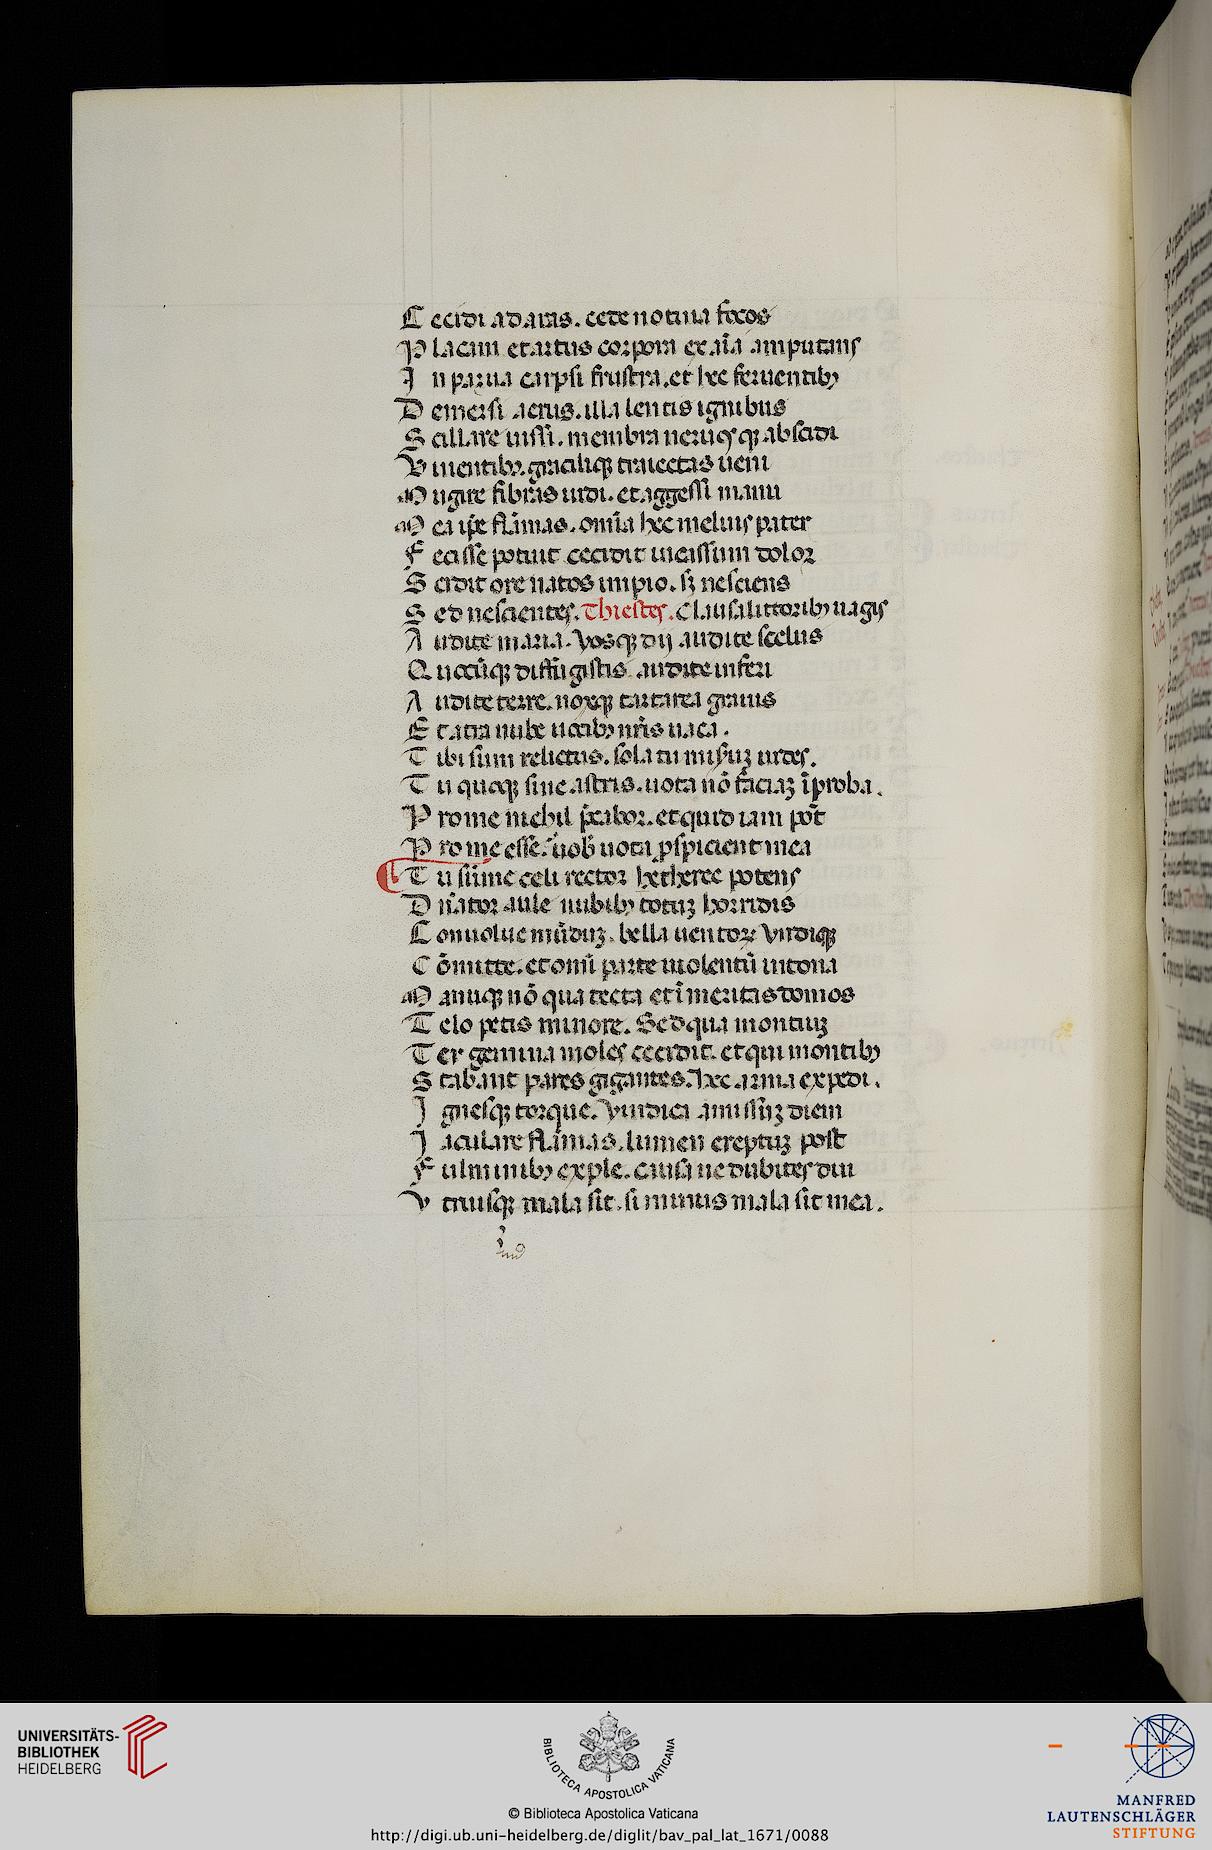 C ecidi ad aras. cede notiua focos
P lacaui et artus corpora exaīa amputans
I n parua carpsi frustra. et hec feruentibꝫ
D emersi aenis. illa lentis ignibus
S tillare iussi. membra neruosqꝫ abscidi
V iuentibꝫ. gracilisqꝫ traiectas ueru
M ugire fibras uidi. et aggessi manu
M ea ip̄e flāmas. om̄ia hec melius pater
F ecisse potuit cecidit incassum dolor
S cidit ore natos impio. sꝫ nesciens
S ed nescientes. Thiestes. Clausa littoribꝫ uagis
A udite maria. Vosqꝫ dii audite scelus
Q uocūqꝫ diffugistis audite inferi
A udite terre. noxqꝫ tartarea grauis
E t atra nube uocibꝫ nr̄is uaca.
T ibi sum relictus. sola tu miserꝫ uides.
T u quoqꝫ sine astris. uota nō faciaꝫ īproba.
P ro me nichil p̄cabor. et quid iam pōt
P ro me esse. uob̄ uota ꝑspicient mea
T u sūme celi rector hetheree potens
D n̄ator aule nubibꝫ totuꝫ horridis
C onuolue mūduꝫ. bella uentorꝫ Vndiqꝫ
C ōmitte. et omni parte uiolentū intona
M anuqꝫ nō qua tecta et īmeritas domos
T elo petis minore. Sed qua montiuꝫ
T er gemina moles cecidit. et qui montibꝫ
S tabant pares gigantes. hec arma expedi.
I gnesqꝫ torque. Vindica amissuꝫ diem
I aculare flāmas. lumen ereptuꝫ polo
F ulminibꝫ exple. causa ne dubites diu
V triusqꝫ mala sit. si minus mala sit mea.
Thiestes
UNIVERSITÄTS-
BIBLIOTHEK
HEIDELBERG
BIBLIOTECA APOSTOLICA VATICANA
© Biblioteca Apostolica Vaticana
http://digi.ub.uni-heidelberg.de/diglit/bav_pal_lat_1671/0088
MANFRED
LAUTENSCHLÄGER
STIFTUNG